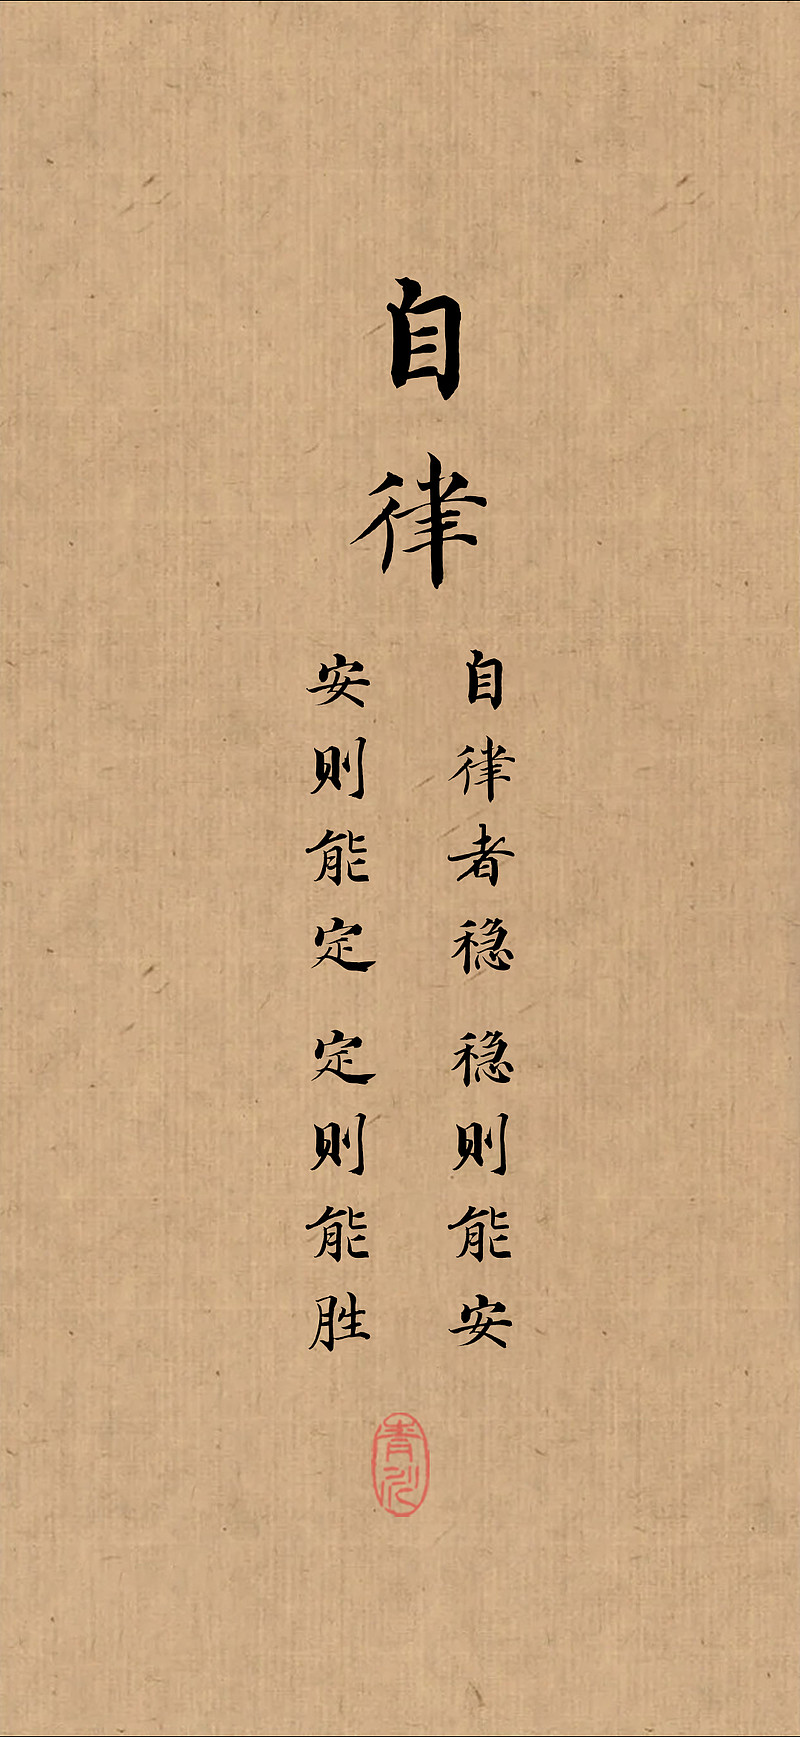 自律
自律者稳 稳则能安
安则能定 定则能胜